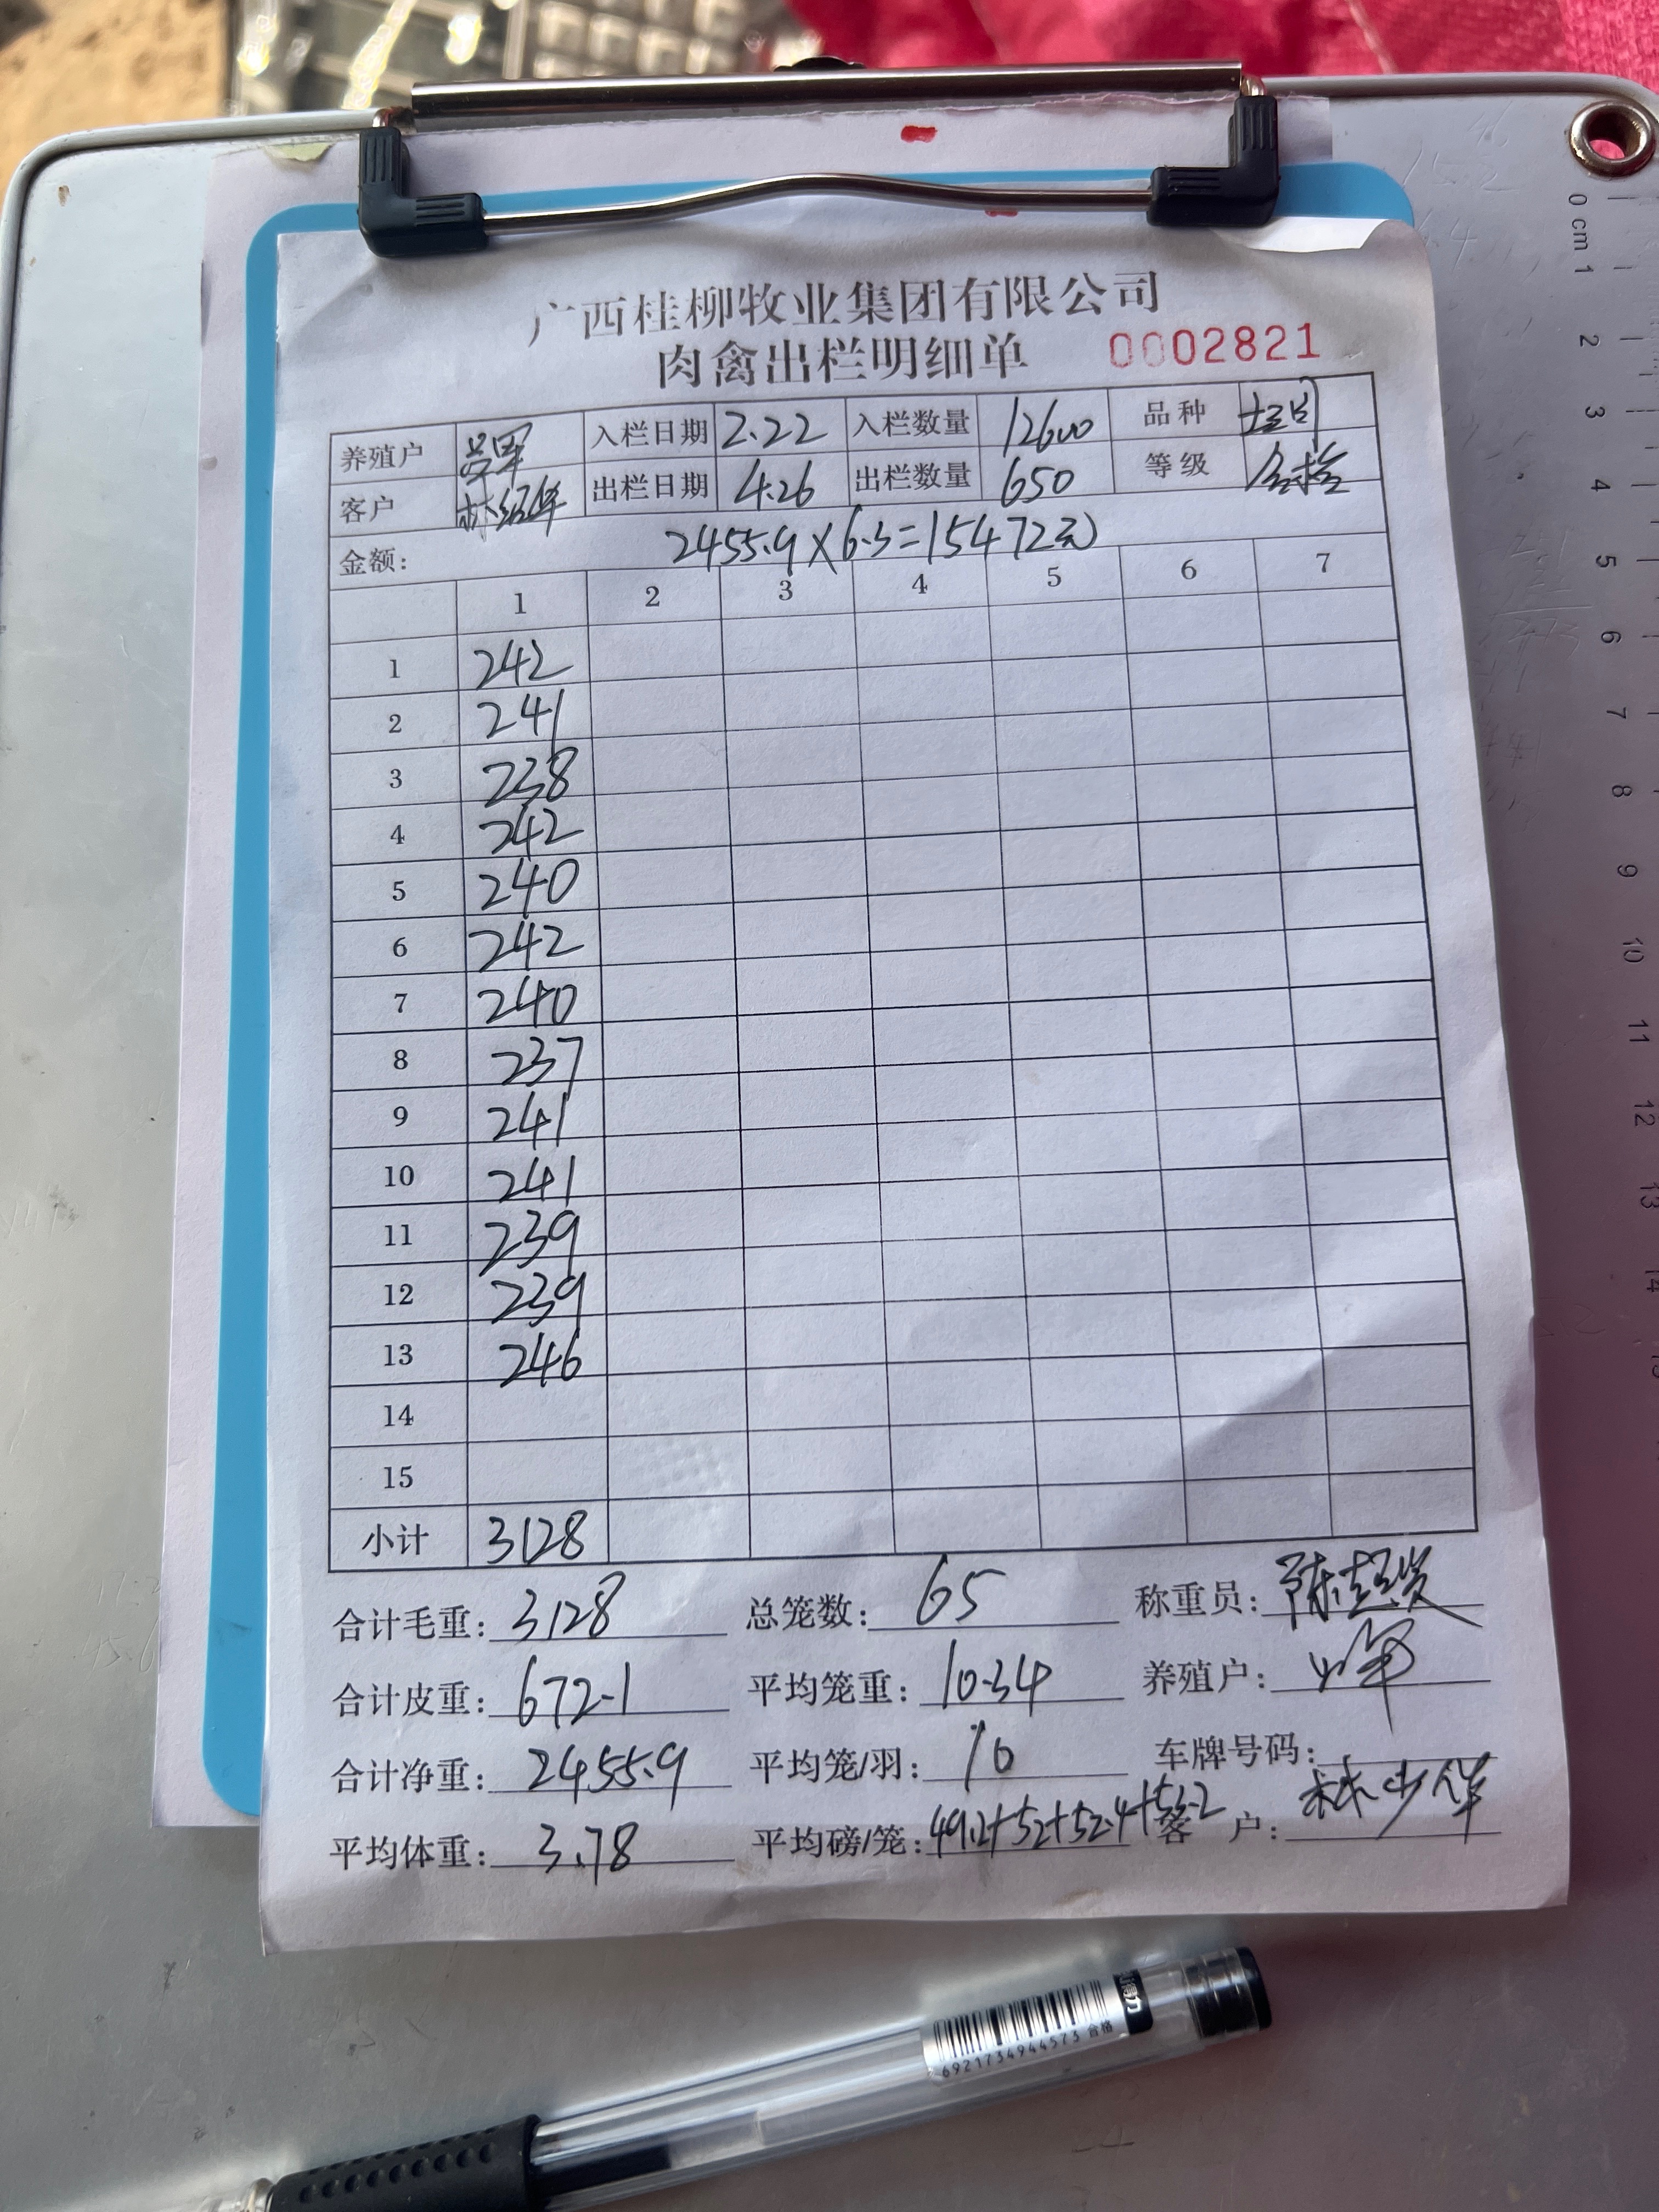 广西桂柳牧业集团有限公司
肉禽出栏明细单 0002821
养殖户 入栏日期 2.22 入栏数量 12600 品种 土司
客户 林绍华 出栏日期 4.26 出栏数量 650 等级
金额: 2455.9×6.3=15472元
1 2 3 4 5 6 7
1 242
2 241
3 238
4 242
5 240
6 242
7 240
8 237
9 241
10 241
11 239
12 239
13 246
14
15
小计 3128
合计毛重: 3128 总笼数: 65 称重员:
合计皮重: 672.1 平均笼重: 10.34 养殖户:
合计净重: 2455.9 平均笼/羽: 10 车牌号码:
平均体重: 3.78 平均磅/笼: 49.2+52+52.4+53.2 客户: 林少华
0 cm 1 2 3 4 5 6 7 8 9 10 11 12 13 14
得力
6921734944573 合格